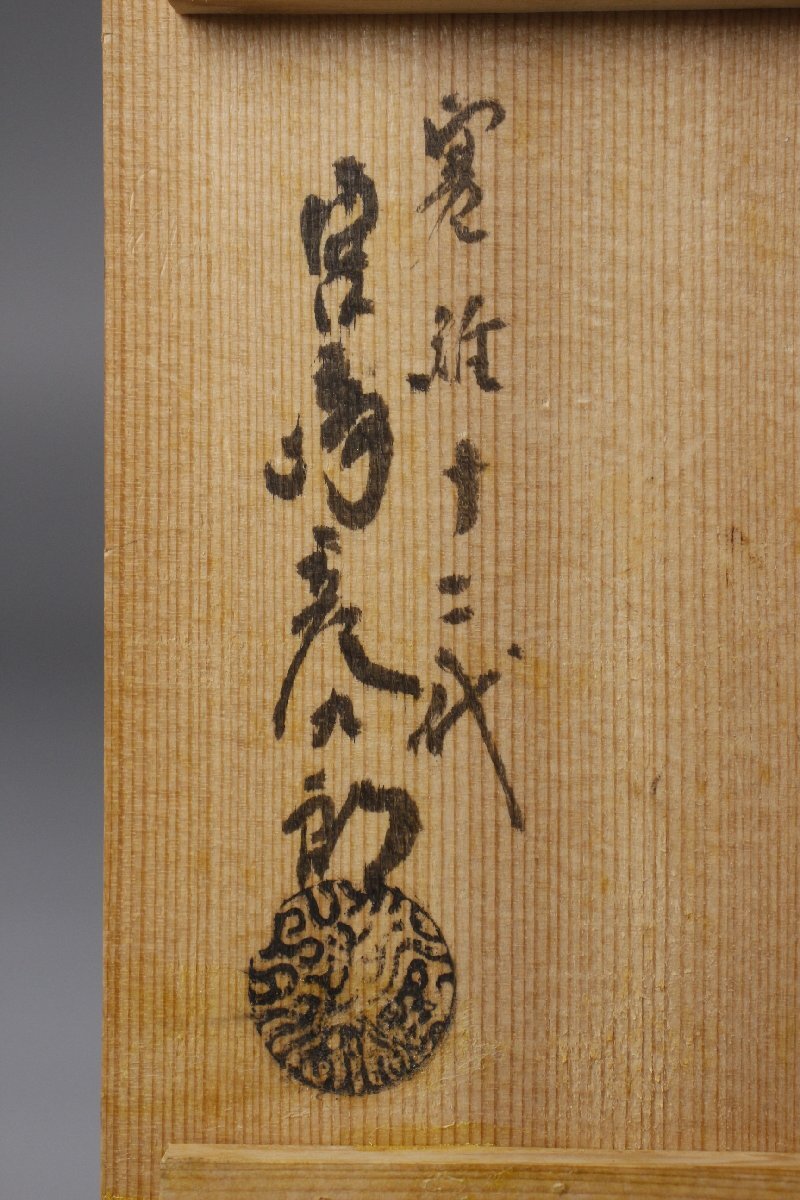 寒雉十二代
宮﨑彦九郎